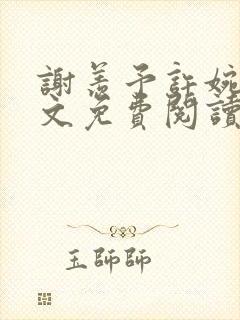 謝恙予許婉
文免費閱讀
玉師師